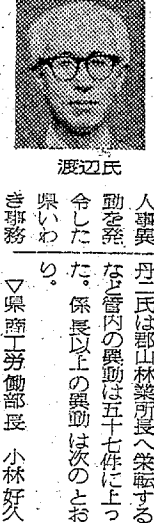 渡辺氏
人事異
動を発
令した
県いわ
き事務
丹二氏は郡山林業所長へ栄転する
など管内の異動は五十七件に上っ
た。係長以上の異動は次のとお
り。
▽県商工労働部長　小林好久